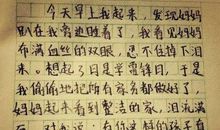 今天早上我起来，发现妈妈
趴在我旁边睡着了，我看见妈妈
布满血丝的双眼，忍不住掉下泪
来。想起3日是学雷锋日，于是我
我偷偷地把所有家务都做好了，
妈妈起来看到整洁的家，泪流满